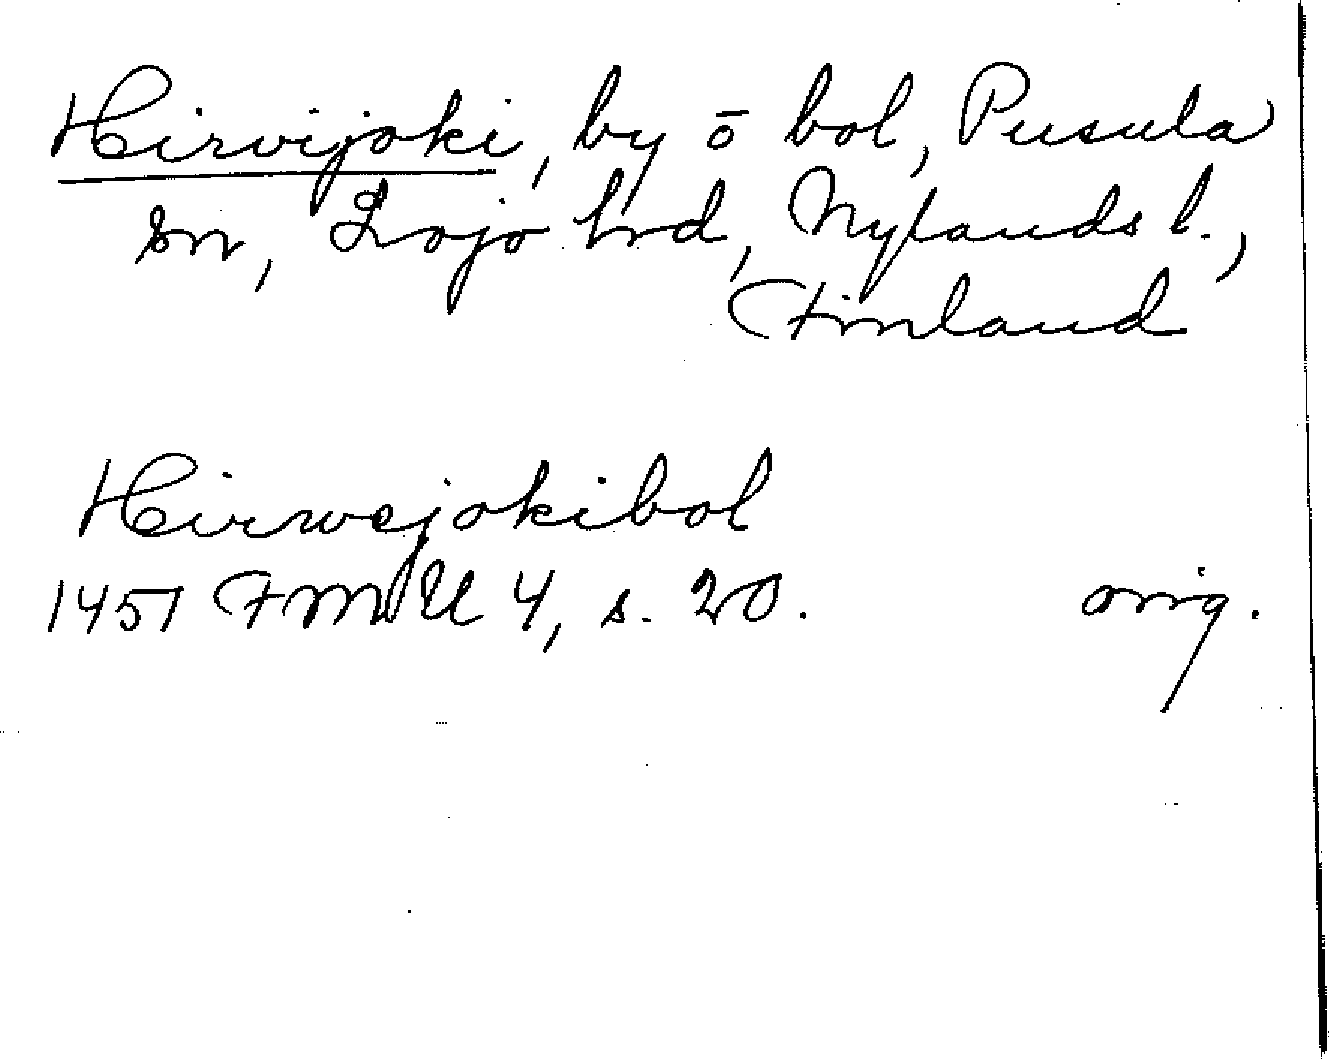 Hirvijoki, by o bol, Pusula
sn, Lojo hrd, Nylands l.,
Finland
Hirwejokibol
1451 FMU 4, s. 20. orig.